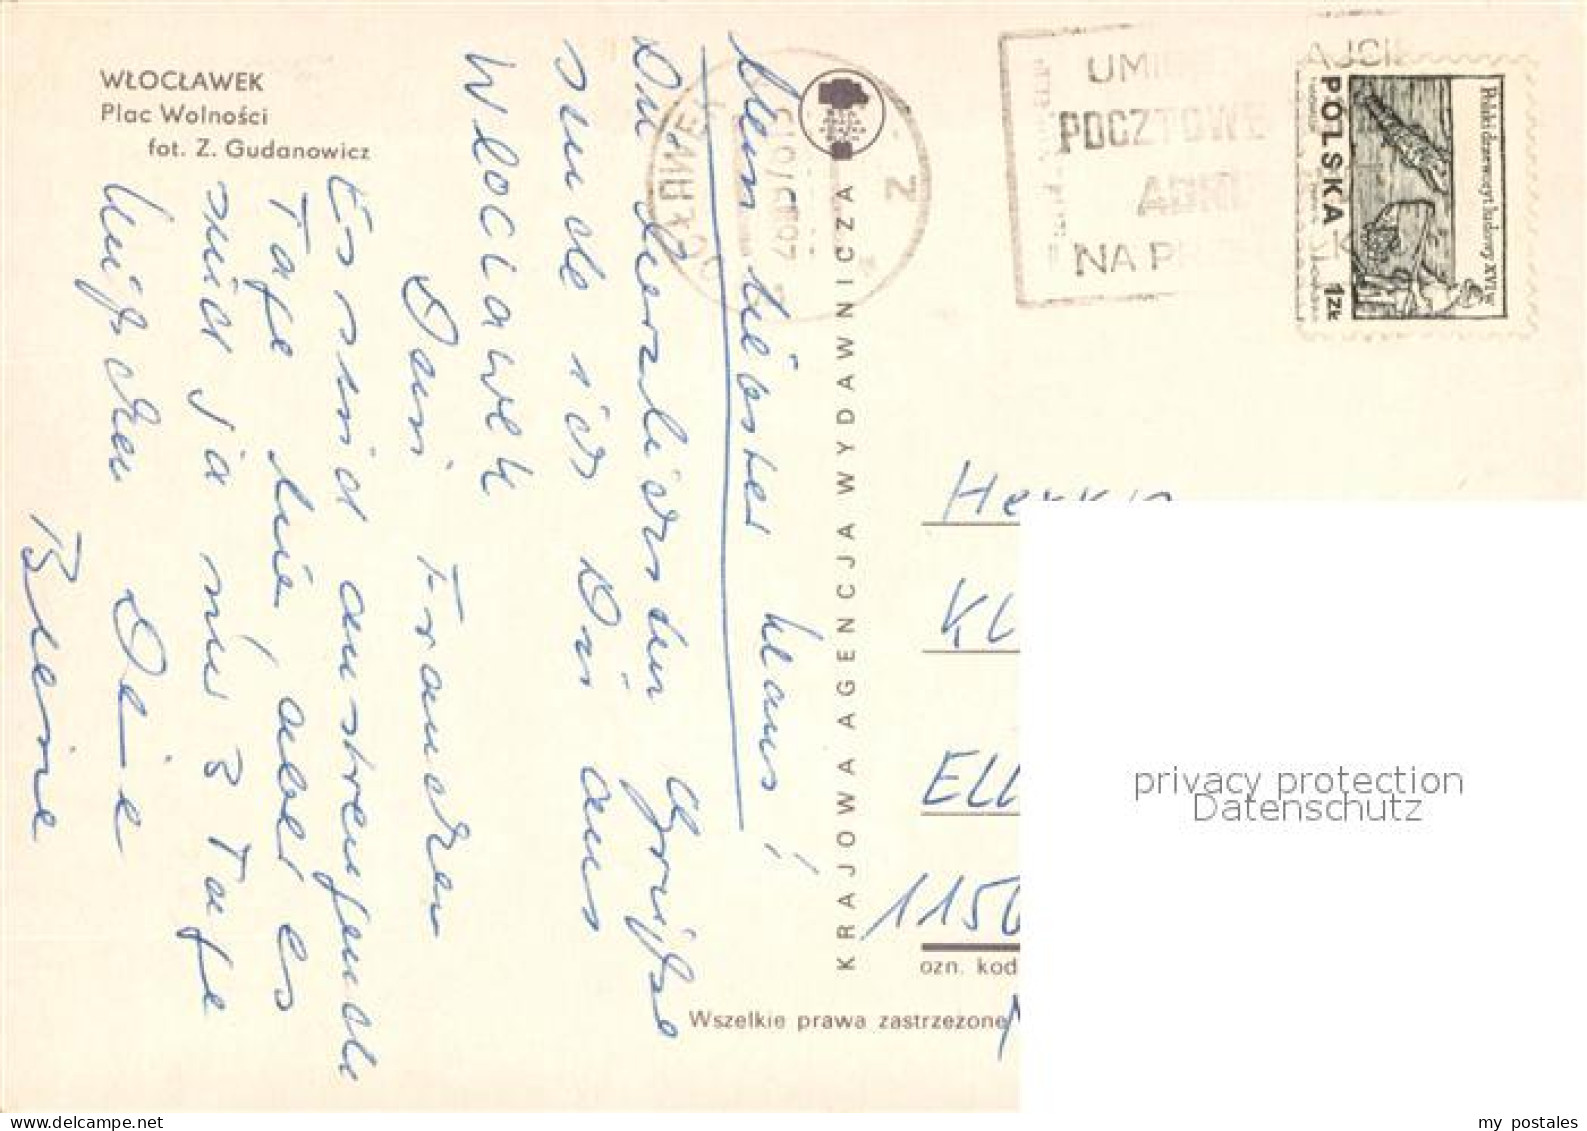 WŁOCŁAWEK
Plac Wolności
fot. Z. Gudanowicz
Mein liebster Klaus!
Die herzlichsten Grüße
sende ich Dir aus
Włocławek
Dein Frauchen
Es sind anstrengende
Tage hier, aber es
sind ja nur 3 Tage
Küßchen Deine
Biene
KRAJOWA AGENCJA WYDAWNICZA
POCZTOWE
NA
POLSKA 1zł
Polski drzeworyt ludowy XVI w
Herrn
KL
ELL
1156
ozn. kod
Wszelkie prawa zastrzeżone
privacy protection
Datenschutz
my postales